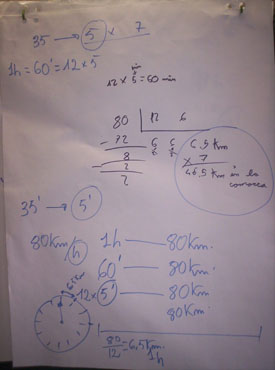 35 → 5 × 7
1h = 60' = 12 × 5
min
12 × 5 = 60 min
80 12 6
- 72 6 6
8
- 2
2
6,5 Km
× 7
46.5 Km in la
35' → 5'
80 Km/h 1h — 80 Km.
60' — 80 Km.
12 × 5' — 80 Km
80 Km.
80/12 = 6,5 Km.
1h